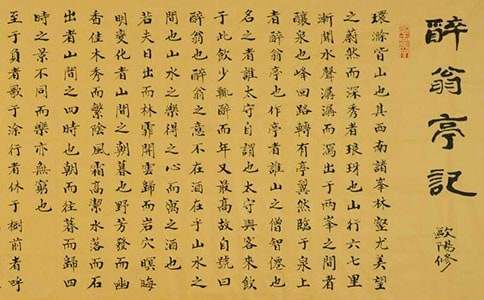 醉翁亭記
歐陽修
環滁皆山也其西南諸峯林壑尤美望
之蔚然而深秀者琅琊也山行六七里
漸聞水聲潺潺而瀉出于兩峯之間者
釀泉也峰回路轉有亭翼然臨于泉上
者醉翁亭也作亭者誰山之僧智僊也
名之者誰太守自謂也太守與客來飲
于此飲少輒醉而年又最高故自號曰
醉翁也醉翁之意不在酒在乎山水之
間也山水之樂得之心而寓之酒也
若夫日出而林霏開雲歸而岩穴暝晦
明變化者山間之朝暮也野芳發而幽
香佳木秀而繁陰風霜高潔水落而石
出者山間之四時也朝而往暮而歸四
時之景不同而樂亦無窮也
至于負者歌于涂行者休于樹前者呼